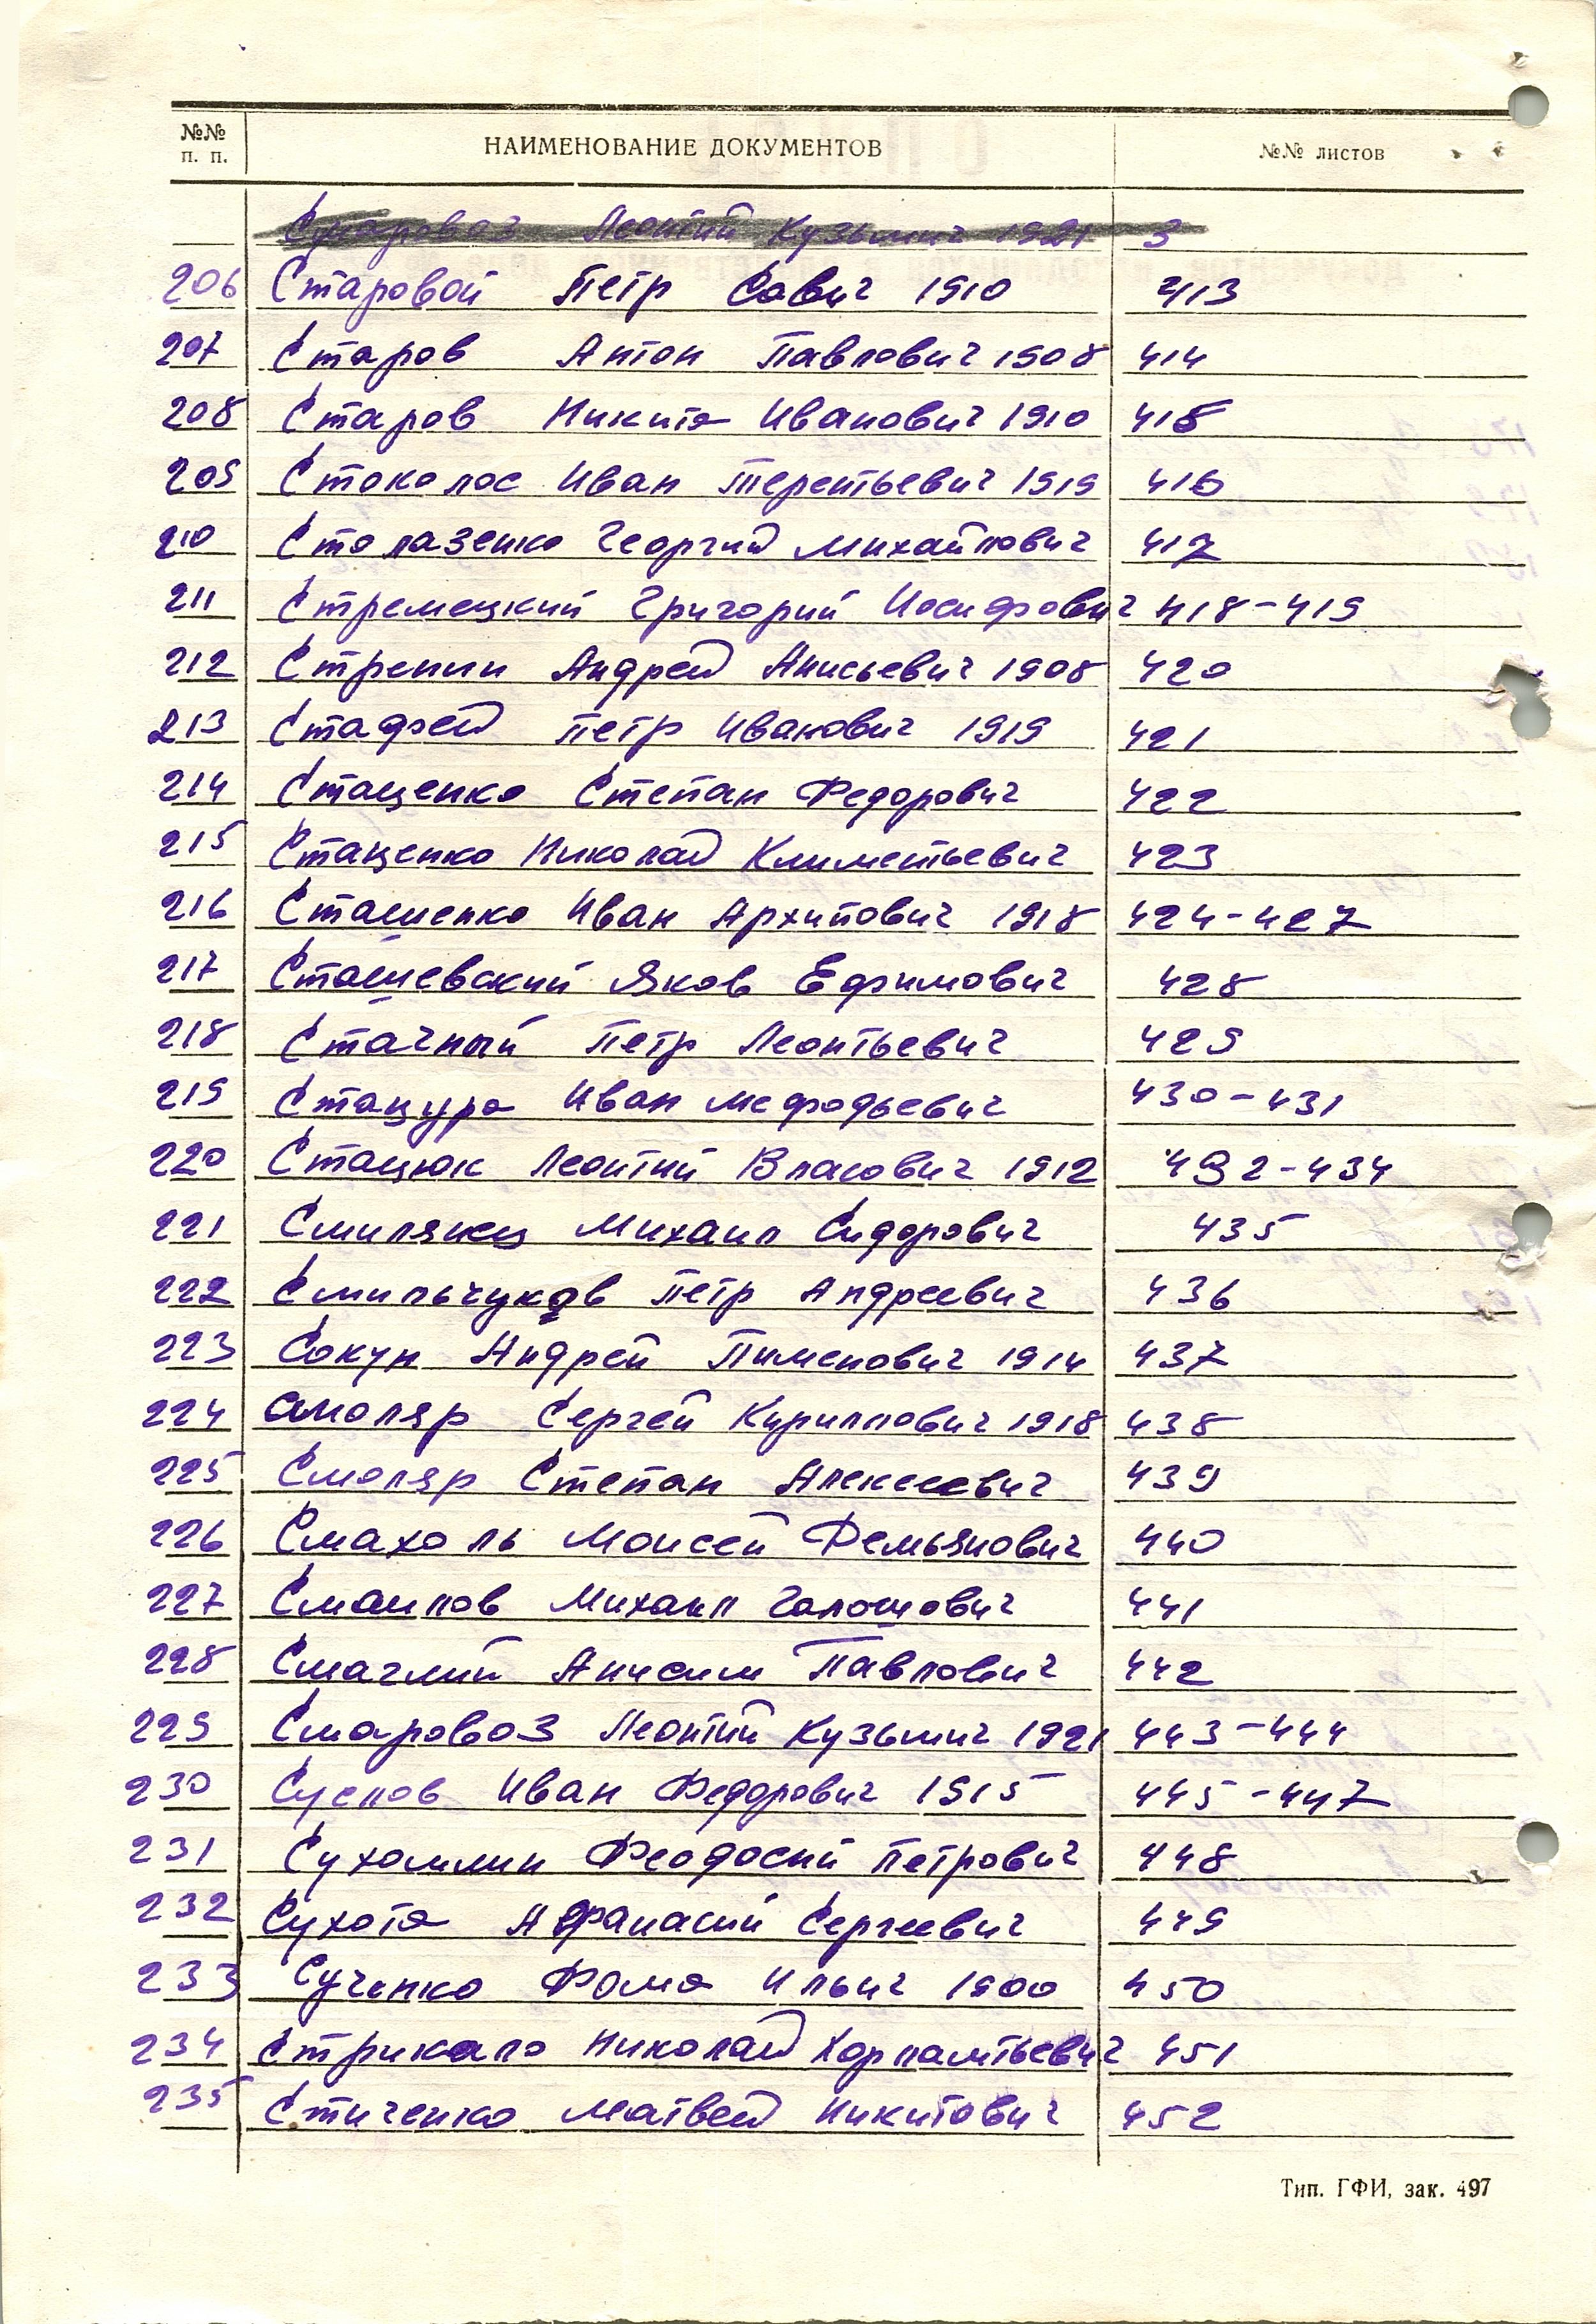 №№ п. п. НАИМЕНОВАНИЕ ДОКУМЕНТОВ №№ листов
Смаровоз Леонтий Кузьмич 1921 3
206 Старовой Петр Савич 1910 413
207 Старов Антон Павлович 1908 414
208 Старов Никита Иванович 1910 415
209 Стоколос Иван Терентьевич 1919 416
210 Столазенко Георгий Михайлович 417
211 Стремецкий Григорий Иосифович 418-419
212 Стренин Андрей Анисьевич 1908 420
213 Стафей Петр Иванович 1919 421
214 Стаценко Степан Федорович 422
215 Стаценко Николай Климетьевич 423
216 Сташенко Иван Архипович 1918 424-427
217 Сташевский Яков Ефимович 428
218 Стачный Петр Леонтьевич 429
219 Стацура Иван Мефодьевич 430-431
220 Стацюк Леонтий Власович 1912 432-434
221 Смилянец Михаил Сидорович 435
222 Смильчуков Петр Андреевич 436
223 Сокун Андрей Пименович 1914 437
224 Смоляр Сергей Кириллович 1918 438
225 Смоляр Степан Алексеевич 439
226 Смахоль Моисей Демьянович 440
227 Смаилов Михаил Галошович 441
228 Смаглий Анисим Павлович 442
229 Смаровоз Леонтий Кузьмич 1921 443-444
230 Суслов Иван Федорович 1915 445-447
231 Сухомлин Феодосий Петрович 448
232 Сухота Афанасий Сергеевич 449
233 Сученко Фома Ильич 1900 450
234 Стрикало Николай Харлантьевич 451
235 Стиченко Матвей Никитович 452
Тип. ГФИ, зак. 497